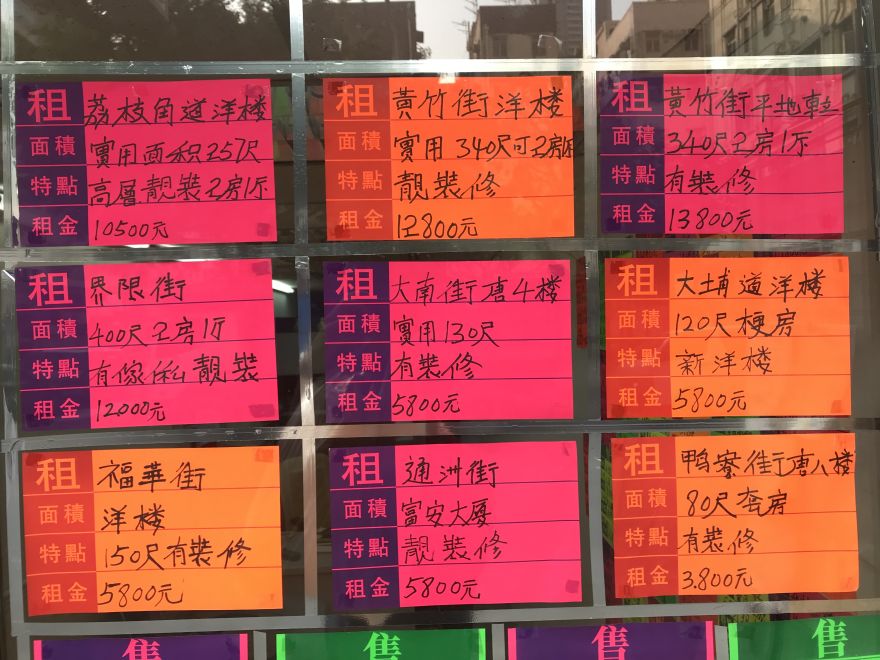 租 荔枝角道洋楼
面積 實用面积257尺
特點 高層靚裝2房1厅
租金 10500元
租 黃竹街洋楼
面積 實用340尺可2房厅
特點 靚裝修
租金 12800元
租 黃竹街平地車立
面積 340尺2房1厅
特點 有裝修
租金 13800元
租 界限街
面積 400尺2房1厅
特點 有傢俬靚裝
租金 12000元
租 大南街唐4楼
面積 實用130尺
特點 有裝修
租金 5800元
租 大埔道洋楼
面積 120尺梗房
特點 新洋楼
租金 5800元
租 福華街
面積 洋楼
特點 150尺有裝修
租金 5800元
租 通洲街
面積 富安大厦
特點 靚裝修
租金 5800元
租 鸭寮街唐八楼
面積 80尺套房
特點 有裝修
租金 3.800元
售 售 售 售